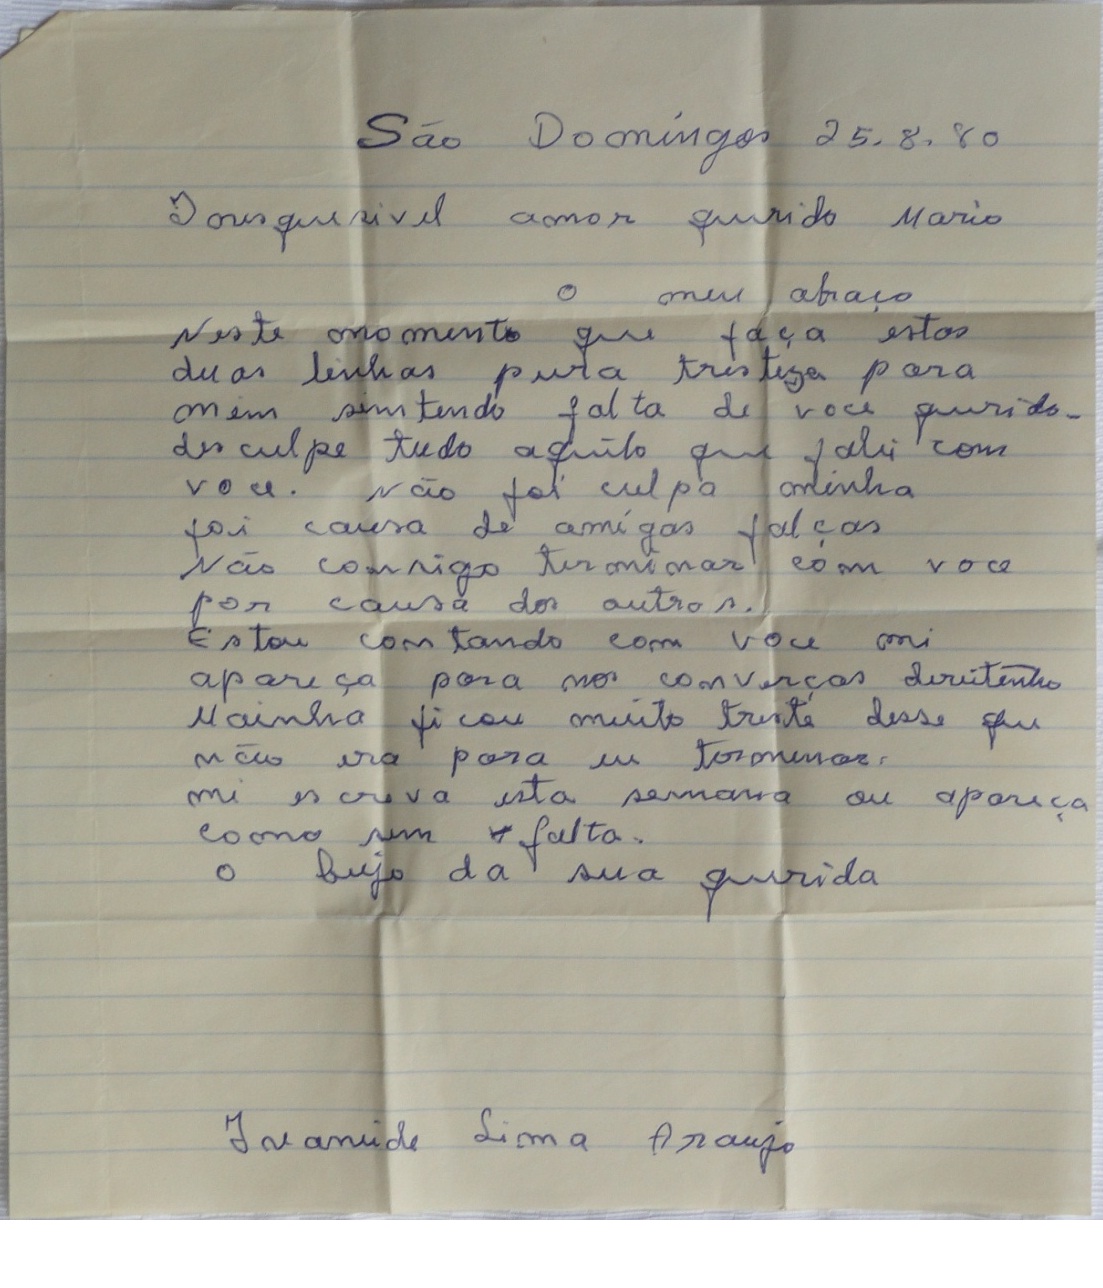 São Domingos 25.8.80
Inesquesivel amor querido Mario
O meu abraço
Neste momento que faça estas
duas linhas pura tristeza para
mem sentendo falta de voce querido-
desculpe tudo aquilo que falei com
voce. Não foi culpa minha
foi causa de amigas falças
Não consigo terminar com voce
por causa dos outros.
Estou contando com voce mi
apareça para nos converças dereitenho
Mainha ficou muito treste desse que
não era para eu terminar.
mi escreva esta semana ou apareça
como sem falta.
O beijo da sua querida
Ivaneide Lima Araujo